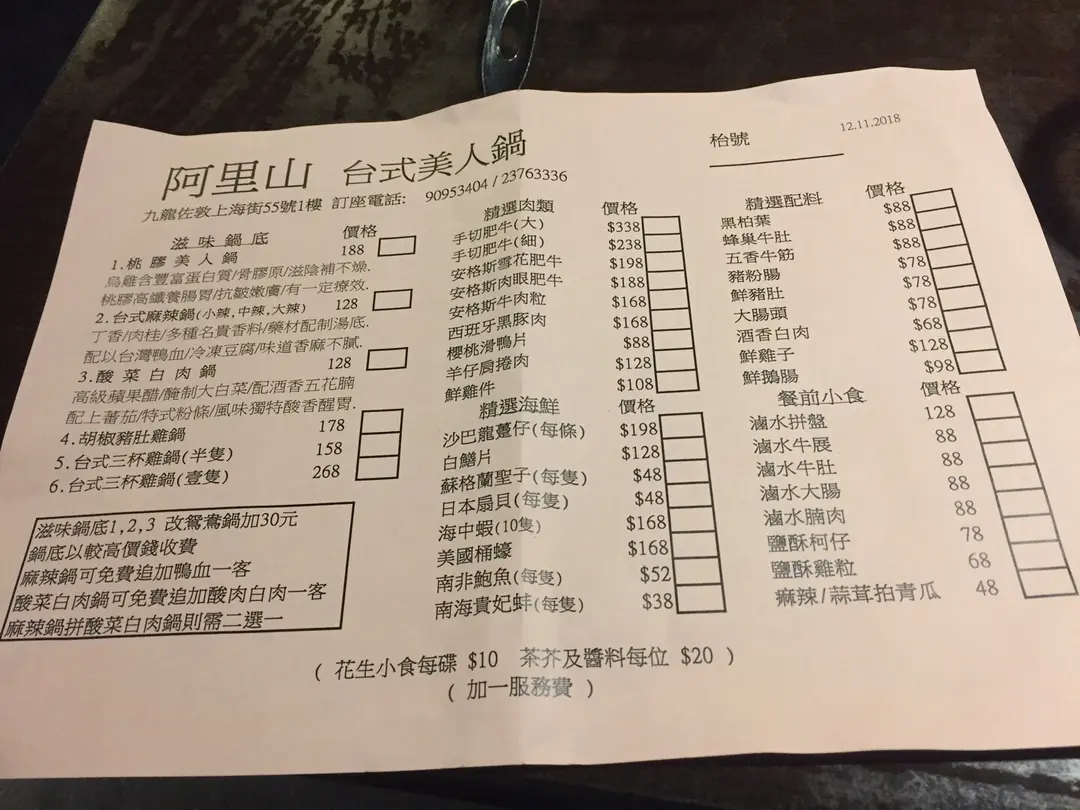 阿里山 台式美人鍋
枱號
12.11.2018
九龍佐敦上海街55號1樓 訂座電話: 90953404 / 23763336
滋味鍋底 價格
1.桃膠美人鍋 188
烏雞含豐富蛋白質/骨膠原/滋陰補不燥.
桃膠高纖養腸胃/抗皺嫩膚/有一定療效.
2.台式麻辣鍋(小辣,中辣,大辣) 128
丁香/肉桂/多種名貴香料/藥材配制湯底.
配以台灣鴨血/冷凍豆腐/味道香麻不膩.
3.酸菜白肉鍋 128
高級蘋果醋/醃制大白菜/配酒香五花腩
配上蕃茄/特式粉條/風味獨特酸香醒胃.
4.胡椒豬肚雞鍋 178
5.台式三杯雞鍋(半隻) 158
6.台式三杯雞鍋(壹隻) 268
滋味鍋底1,2,3 改鴛鴦鍋加30元
鍋底以較高價錢收費
麻辣鍋可免費追加鴨血一客
酸菜白肉鍋可免費追加酸肉白肉一客
麻辣鍋拼酸菜白肉鍋則需二選一
精選肉類 價格
手切肥牛(大) $338
手切肥牛(細) $238
安格斯雪花肥牛 $198
安格斯肉眼肥牛 $188
安格斯牛肉粒 $168
西班牙黑豚肉 $168
櫻桃滑鴨片 $88
羊仔肩捲肉 $128
鮮雞件 $108
精選海鮮 價格
沙巴龍躉仔(每條) $198
白鱔片 $128
蘇格蘭聖子(每隻) $48
日本扇貝(每隻) $48
海中蝦(10隻) $168
美國桶蠔 $168
南非鮑魚(每隻) $52
南海貴妃蚌(每隻) $38
精選配料 價格
黑柏葉 $88
蜂巢牛肚 $88
五香牛筋 $88
豬粉腸 $78
鮮豬肚 $78
大腸頭 $78
酒香白肉 $68
鮮雞子 $128
鮮鵝腸 $98
餐前小食 價格
滷水拼盤 128
滷水牛展 88
滷水牛肚 88
滷水大腸 88
滷水腩肉 88
鹽酥柯仔 78
鹽酥雞粒 68
麻辣/蒜茸拍青瓜 48
( 花生小食每碟 $10 茶芥及醬料每位 $20 )
( 加一服務費 )